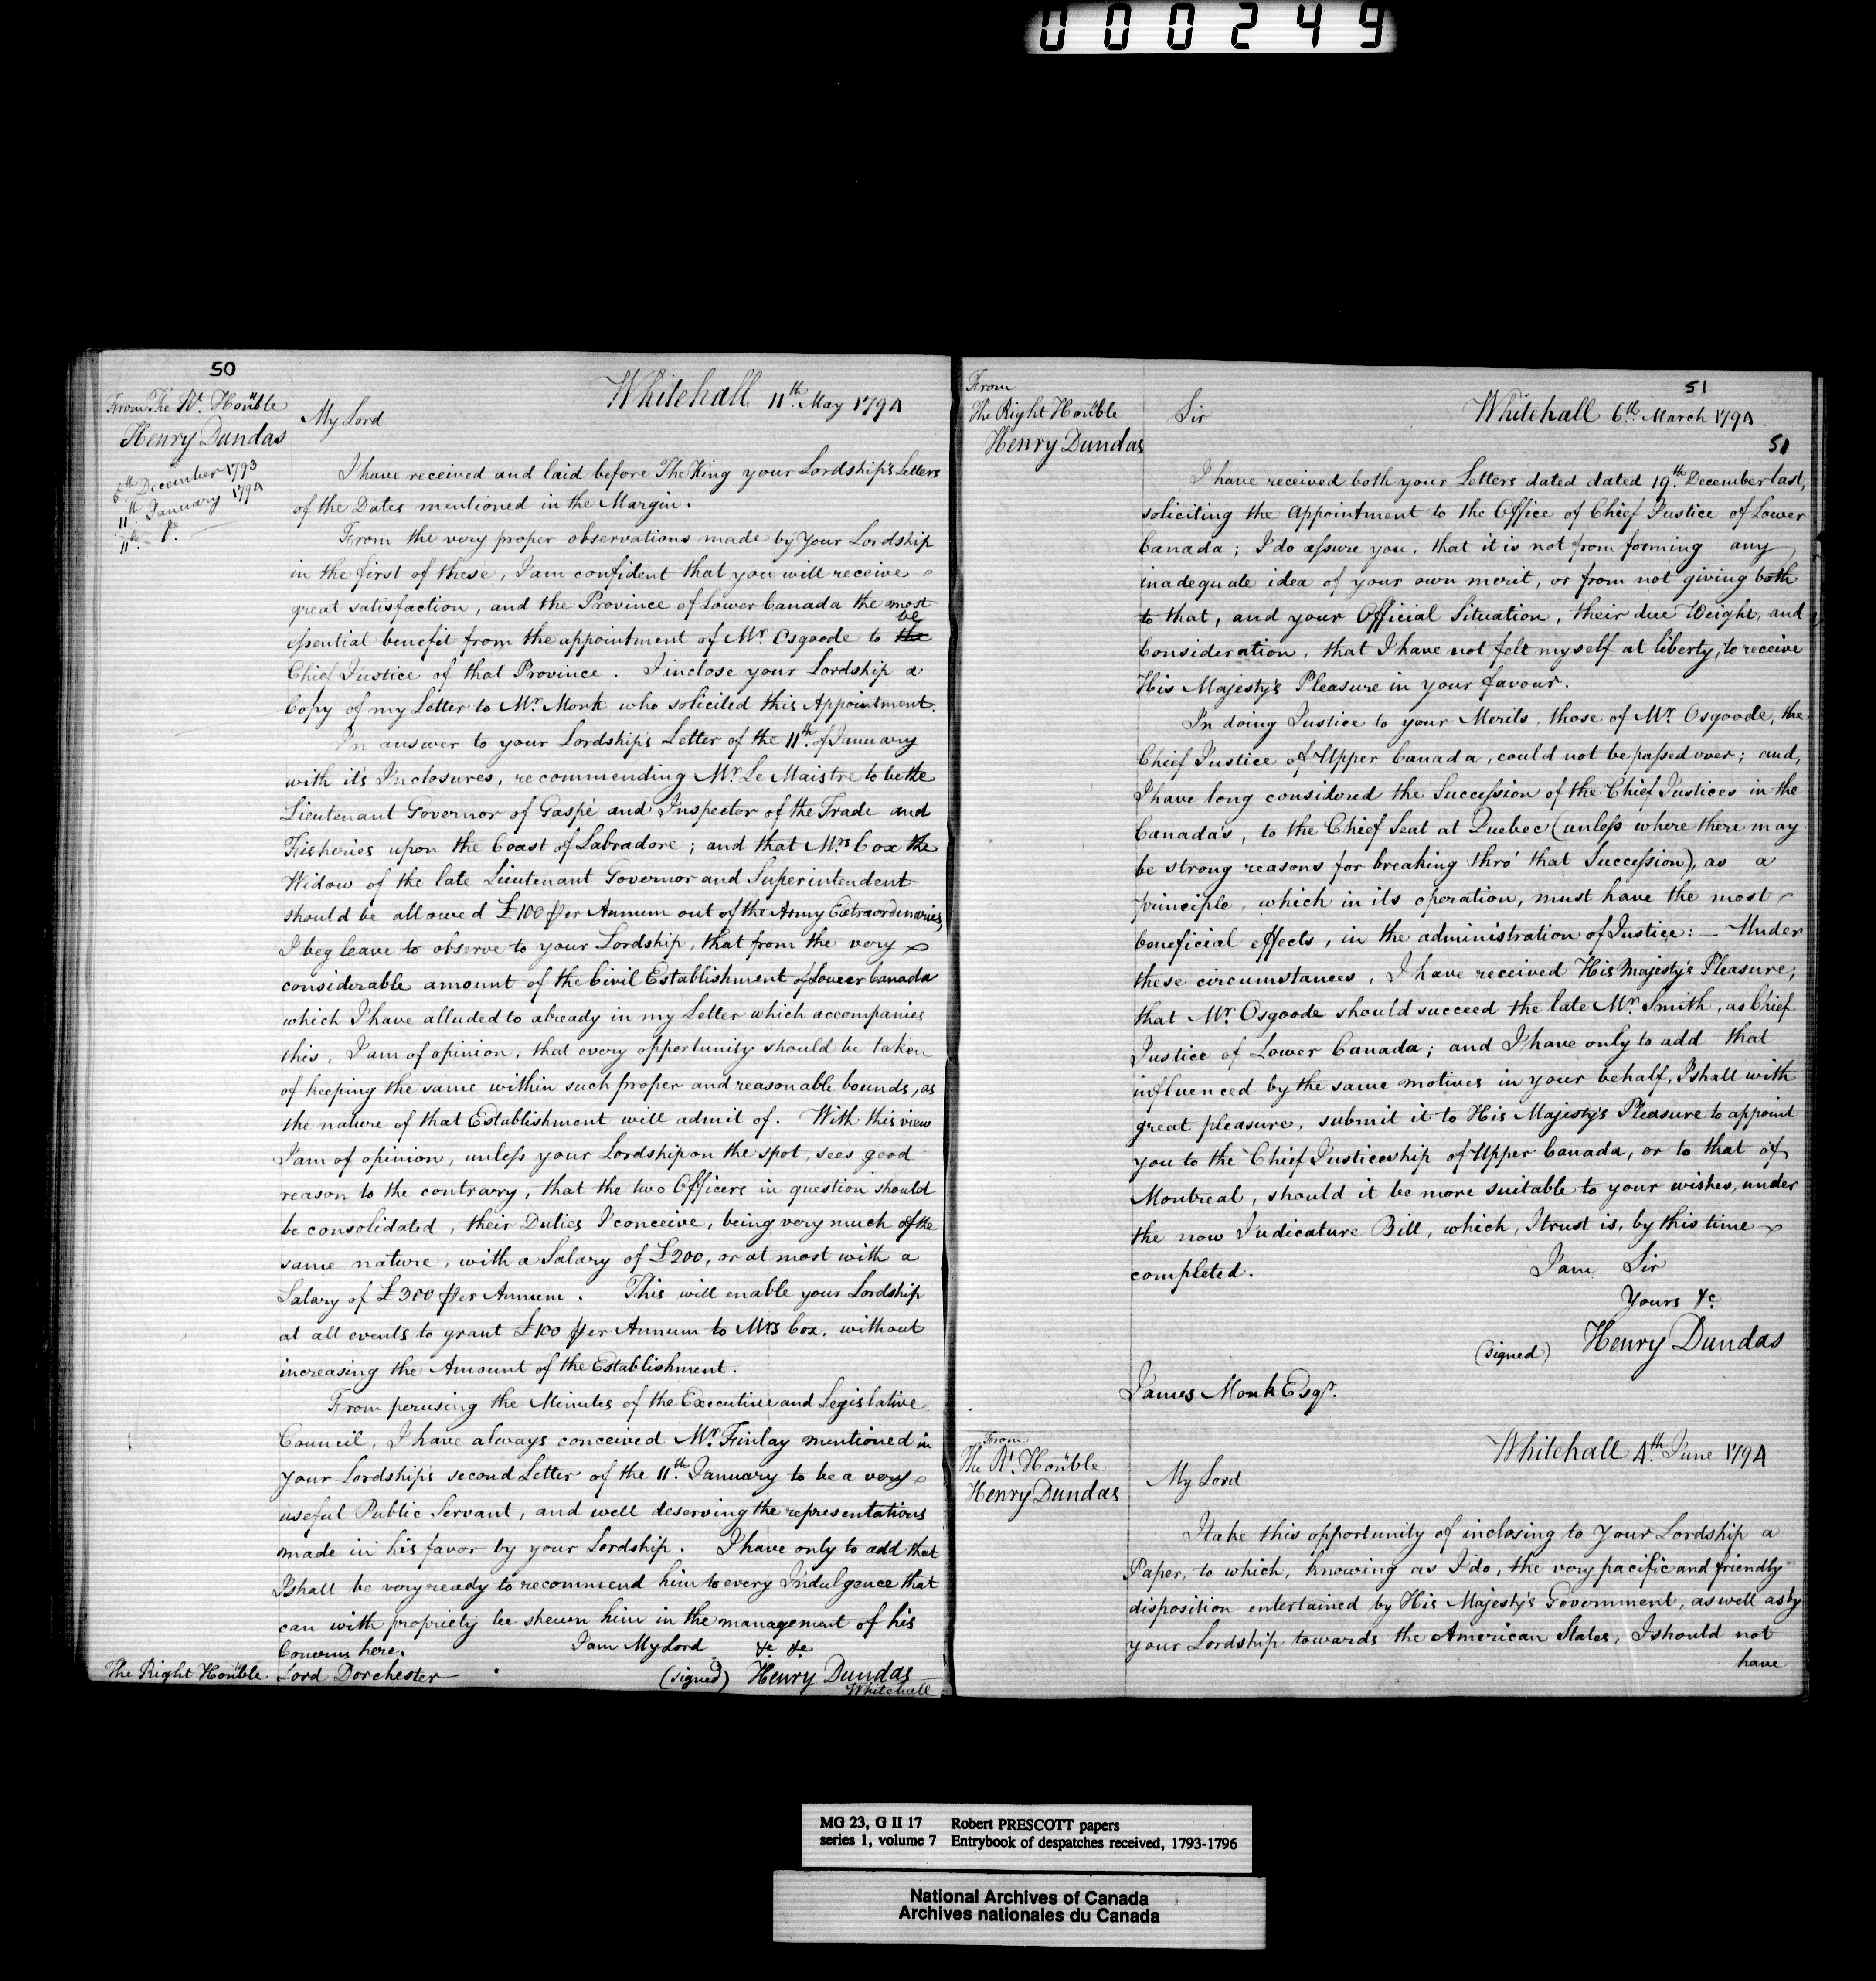 000249
50
From The Rt. Honble
Henry Dundas
5th December 1793
11th January 1794
11th – Do.
Whitehall 11th May 1794
My Lord
I have received and laid before The King your Lordship's Letters
of the Dates mentioned in the Margin.
From the very proper observations made by Your Lordship
in the first of these, I am confident that you will receive
great satisfaction, and the Province of Lower Canada the most
essential benefit from the appointment of Mr. Osgoode to the be
Chief Justice of that Province. I inclose your Lordship a
Copy of my Letter to Mr. Monk who solicited this Appointment.
In answer to your Lordship's Letter of the 11th of January
with it's Inclosures, recommending Mr. Le Maistre to be the
Lieutenant Governor of Gaspé and Inspector of the Trade and
Fisheries upon the Coast of Labradore; and that Mrs Cox the
Widow of the late Lieutenant Governor and Superintendent
should be allowed £100 per Annum out of the Army Extraordinaries,
I beg leave to observe to your Lordship, that from the very
considerable amount of the Civil Establishment of Lower Canada
which I have alluded to already in my Letter which accompanies
this, I am of opinion, that every opportunity should be taken
of keeping the same within such proper and reasonable bounds, as
the nature of that Establishment will admit of. With this view
I am of opinion, unless your Lordship on the spot, sees good
reason to the contrary, that the two Officers in question should
be consolidated, their Duties I conceive, being very much of the
same nature, with a Salary of £200, or at most with a
Salary of £300 per Annum. This will enable your Lordship
at all events to grant £100 per Annum to Mrs Cox, without
increasing the Amount of the Establishment.
From perusing the Minutes of the Executive and Legislative
Council, I have always conceived Mr. Finlay mentioned in
your Lordship's second Letter of the 11th January to be a very
useful Public Servant, and well deserving the representations
made in his favor by your Lordship. I have only to add that
I shall be very ready to recommend him to every Indulgence that
can with propriety be shewn him in the management of his
Concerns here. I am My Lord &c &c
The Right Honble Lord Dorchester (signed) Henry Dundas
Whitehall
51
From
The Right Honble
Henry Dundas
Sir
Whitehall 6th March 1794
51
I have received both your Letters dated dated 19th December last,
soliciting the Appointment to the Office of Chief Justice of Lower
Canada; I do assure you, that it is not from forming any
inadequate idea of your own merit, or from not giving both
to that, and your Official Situation, their due Weight, and
Consideration, that I have not felt myself at liberty, to receive
His Majesty's Pleasure in your favour.
In doing Justice to your Merits, those of Mr. Osgoode, the
Chief Justice of Upper Canada, could not be passed over; and,
I have long considered the Succession of the Chief Justices in the
Canada's, to the Chief Seat at Quebec (unless where there may
be strong reasons for breaking thro' that Succession), as a
principle, which in its operation, must have the most
beneficial effects, in the administration of Justice: – Under
these circumstances, I have received His Majesty's Pleasure,
that Mr. Osgoode should succeed the late Mr. Smith, as Chief
Justice of Lower Canada; and I have only to add that
influenced by the same motives in your behalf, I shall with
great pleasure, submit it to His Majesty's Pleasure to appoint
you to the Chief Justiceship of Upper Canada, or to that of
Montreal, should it be more suitable to your wishes, under
the now Judicature Bill, which, I trust is, by this time
completed. I am Sir
Yours &c.
(signed) Henry Dundas
James Monk Esqr.
From
The Rt. Honble
Henry Dundas
Whitehall 4th June 1794
My Lord
I take this opportunity of inclosing to Your Lordship a
Paper, to which, knowing as I do, the very pacific and friendly
disposition entertained by His Majesty's Government, as well as by
your Lordship towards the American States, I should not
have
MG 23, G II 17 Robert PRESCOTT papers
series 1, volume 7 Entrybook of despatches received, 1793-1796
National Archives of Canada
Archives nationales du Canada